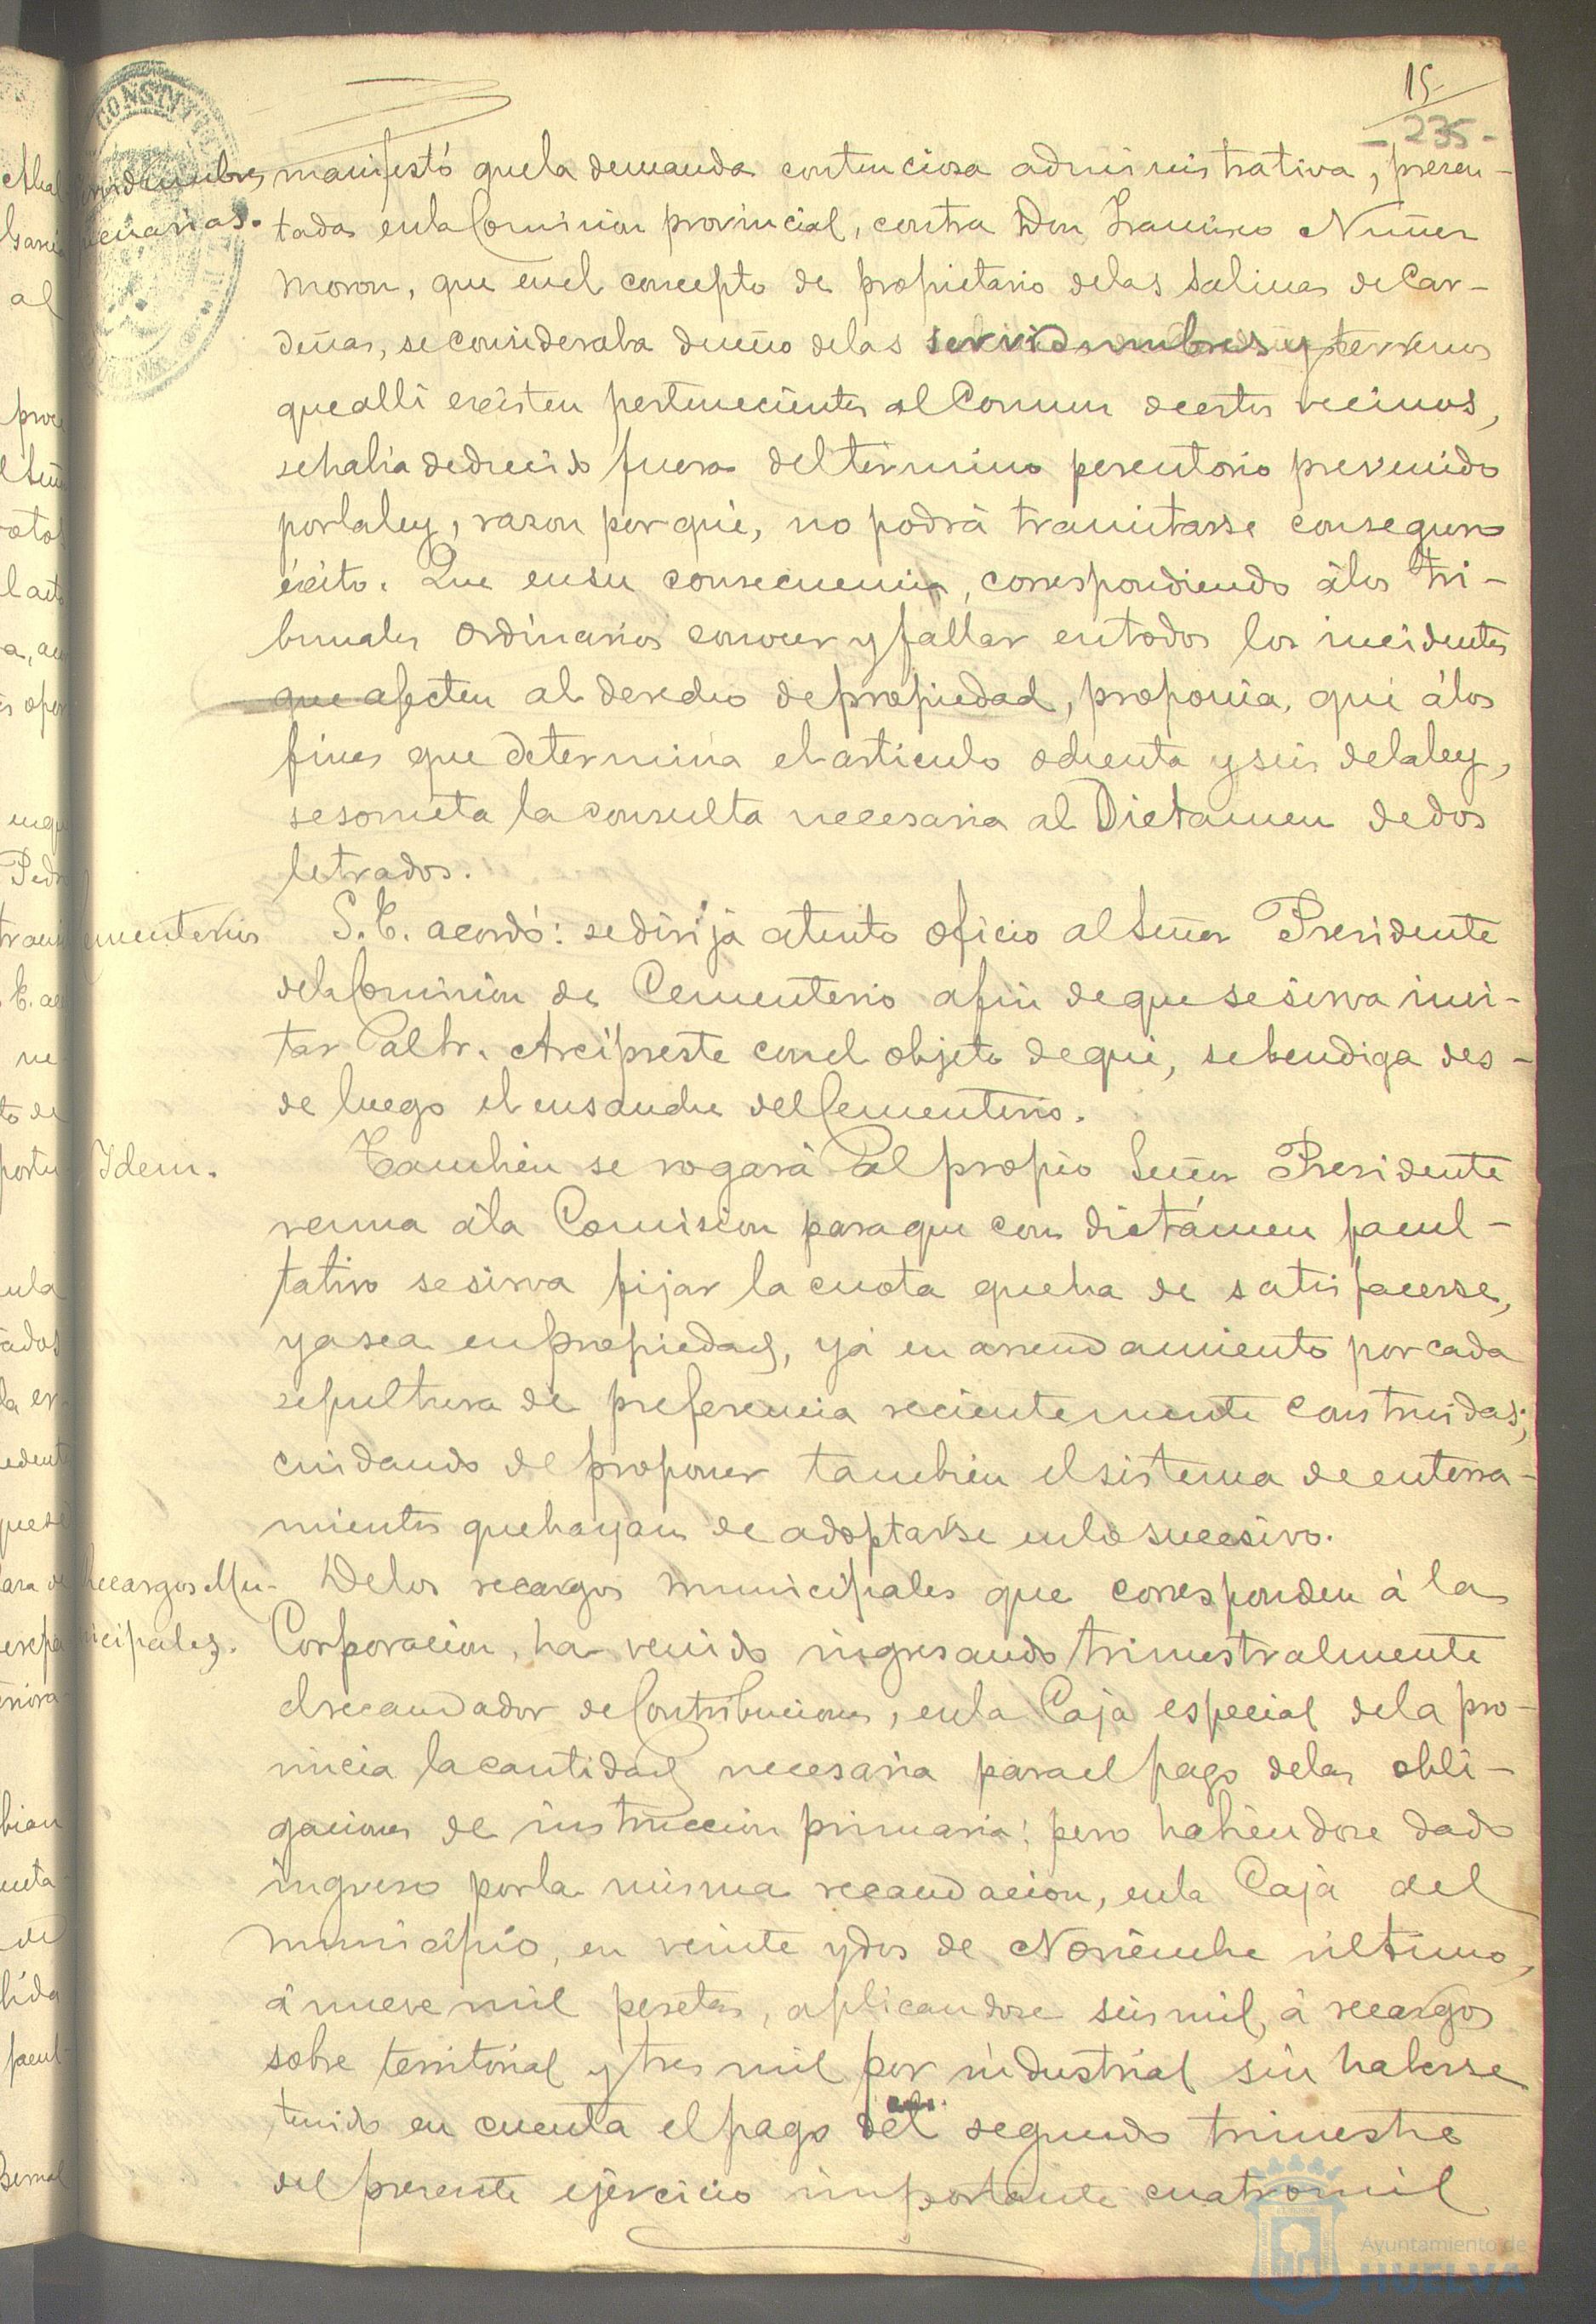 15
- 235 -
CONSTITU
servidumbres manifestó que la demanda contenciosa administrativa, presen-
cuarias. tada en la Comision provincial, contra Don Francisco Nuñez
Moron, que en el concepto de propietario de las Salinas de Car-
deñas, se consideraba dueño de las servidumbres y terrenos
que alli existen pertenecientes al Comun de estos vecinos,
se habia deducido fuera del termino perentorio prevenido
por la ley, razon por qué, no podrá tramitarse con seguro
éxito. Que en su consecuencia, correspondiendo á los Tri-
bunales ordinarios conocer y fallar en todos los incidentes
que afecten al derecho de propiedad, proponia, que á los
fines que determina el articulo ochenta y seis de la ley,
se someta la consulta necesaria al Dictamen de dos
letrados.
ementerio S. E. acordó: se dirija atento oficio al Señor Presidente
de la Comision de Cementerio a fin de que se sirva invi-
tar al Sr. Arcipreste con el objeto de que, se bendiga des-
de luego el ensanche del Cementerio.
Idem. Tambien se rogará al propio Señor Presidente
reuna á la Comision para que con dictámen facul-
tativo se sirva fijar la cuota que ha de satisfacerse,
ya sea en propiedad, ya en arrendamiento por cada
sepultura de preferencia recientemente construidas;
cuidando de proponer tambien el sistema de enterra-
mientos que hayan de adoptarse en lo sucesivo.
Recargos Mu- De los recargos municipales que corresponden á la
nicipales. Corporacion, ha venido ingresando trimestralmente
el recaudador de Contribuciones, en la Caja especial de la pro-
vincia la cantidad necesaria para el pago de las obli-
gaciones de instruccion primaria; pero habiéndose dado
ingreso por la misma recaudacion, en la Caja del
municipio, en veinte y dos de Noviembre último,
á nueve mil pesetas, aplicandose seis mil, á recargos
sobre territorial y tres mil por industrial sin haberse
tenido en cuenta el pago del segundo trimestre
del presente ejercicio importante cuatro mil
Ayuntamiento de
HUELVA